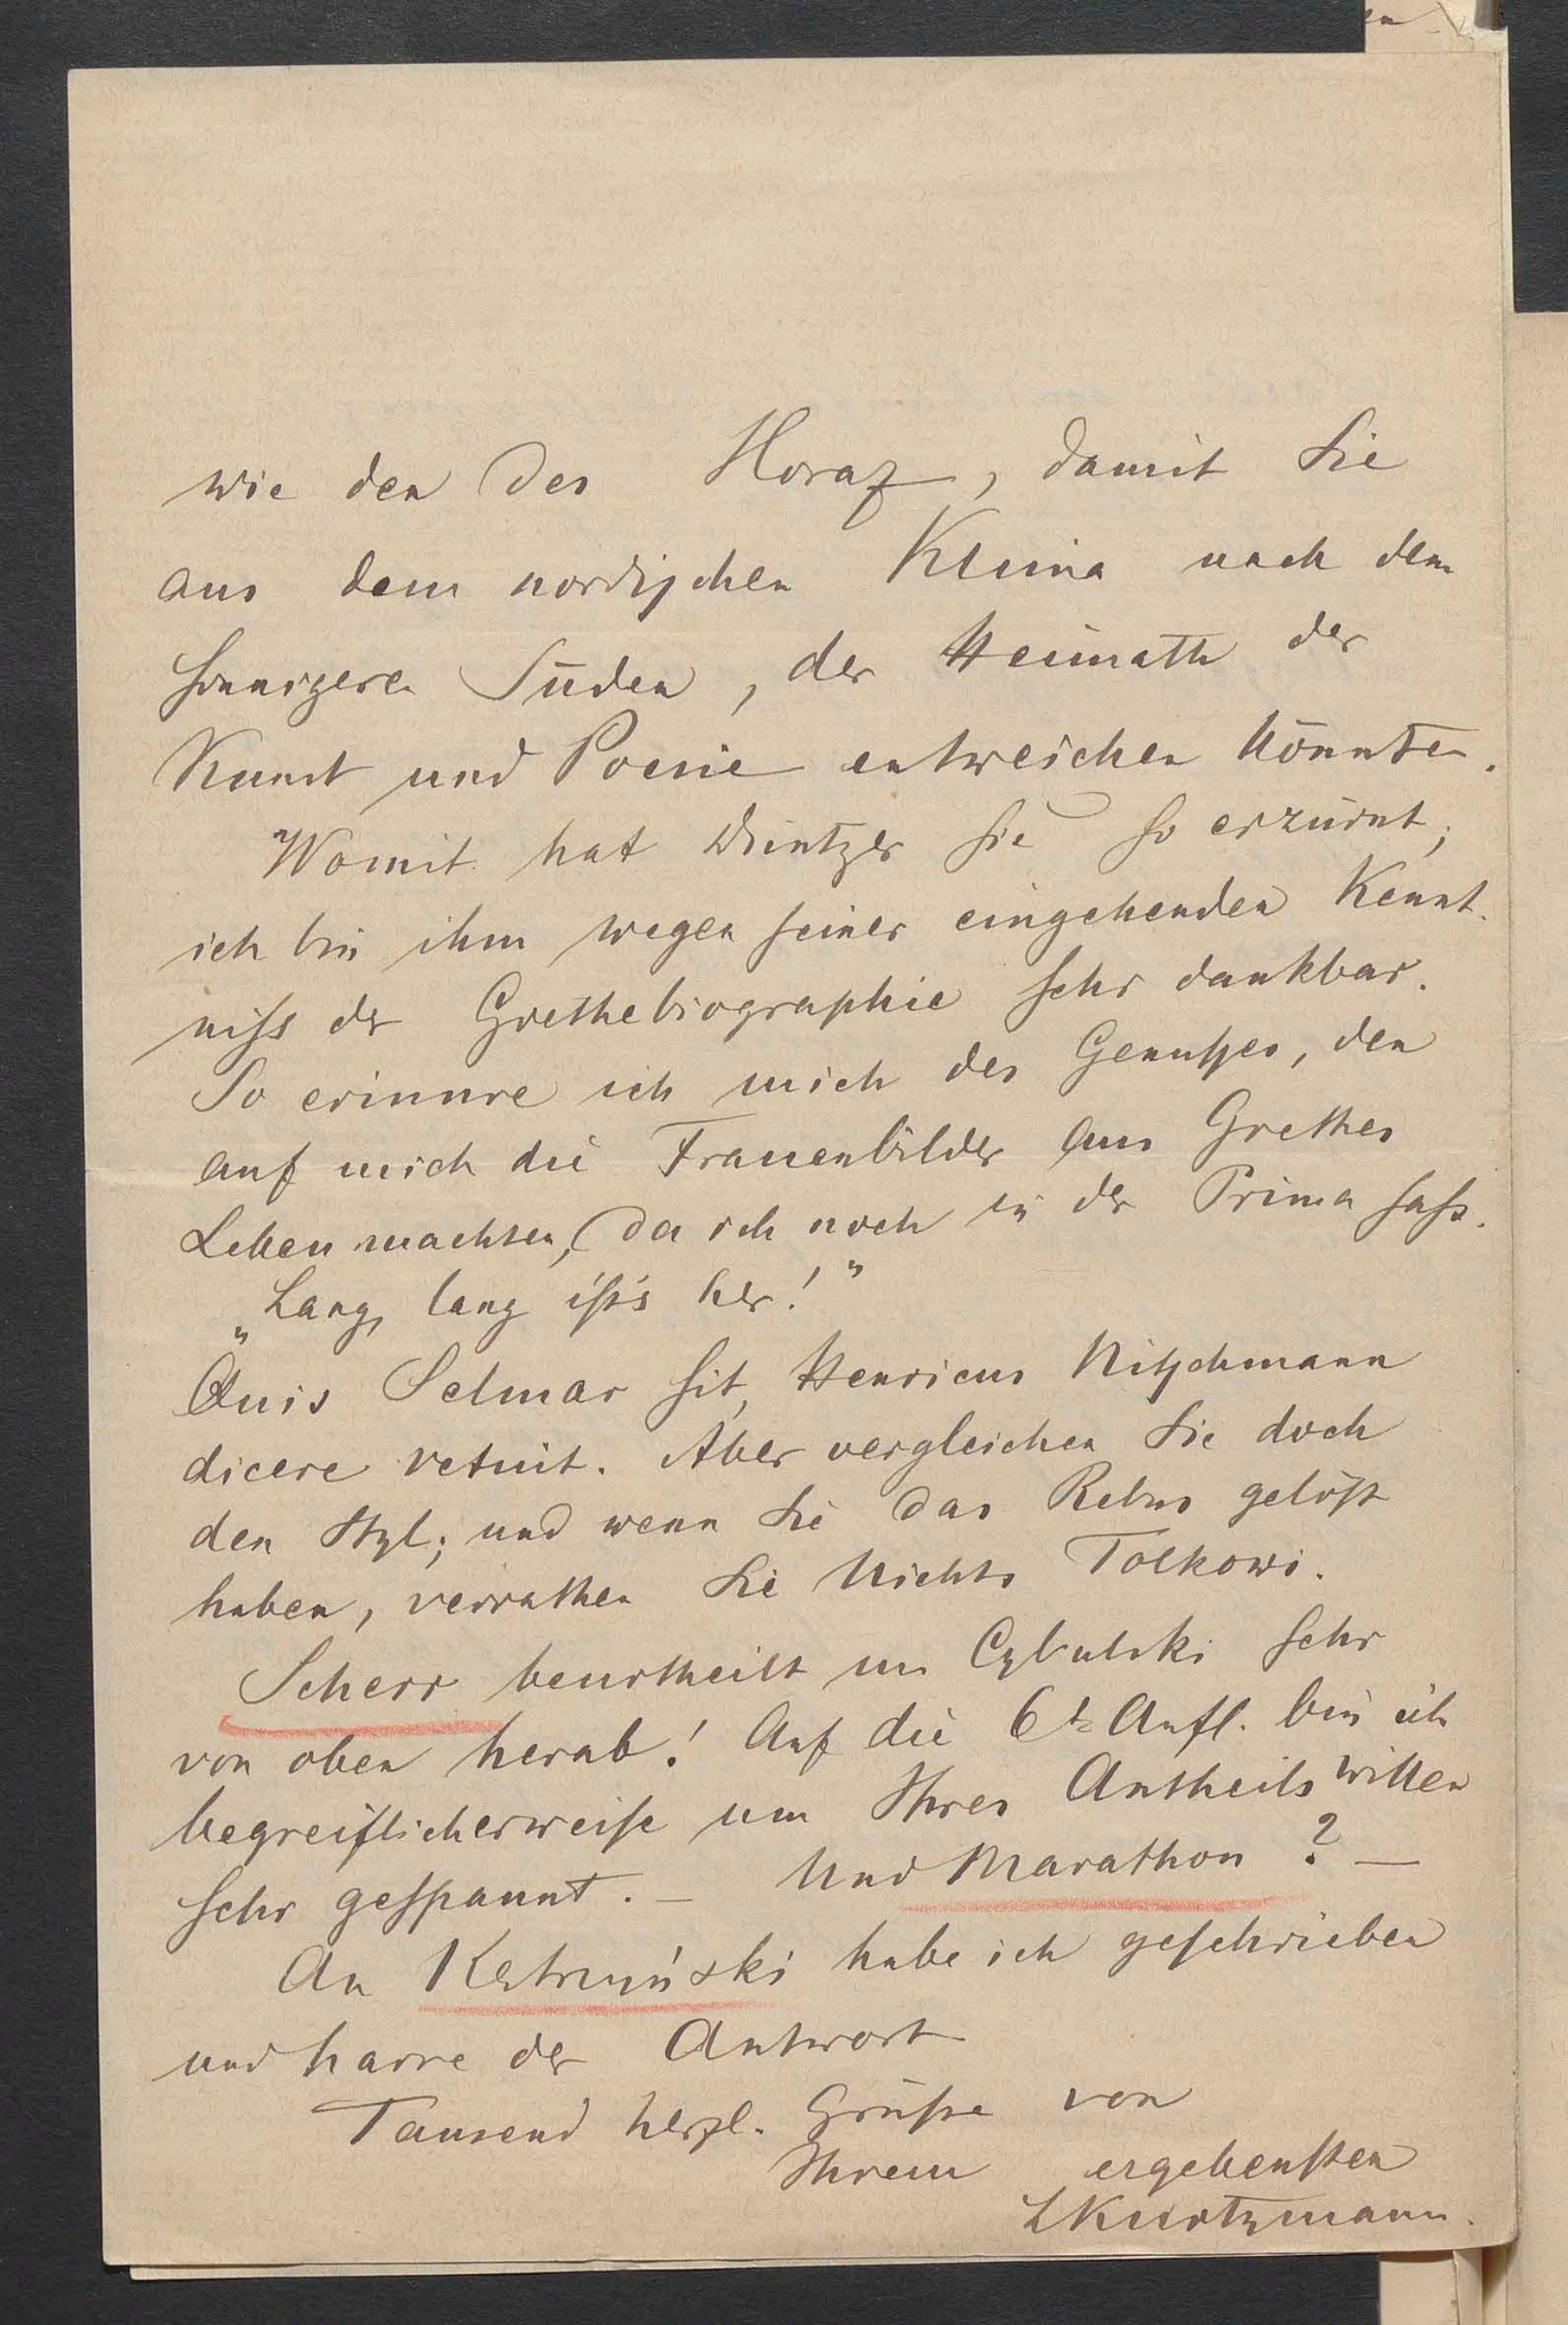 wie den des Horaz, damit Sie
aus dem nordischen Klima nach dem
sonnigeren Süden, der Heimath der
Kunst und Poesie entweichen könnten.
Womit hat Düntzer Sie so erzürnt;
ich bin ihm wegen seiner eingehenden Kennt-
niss der Goethebiographie sehr dankbar.
So erinnre ich mich des Genusses, den
auf mich die Frauenbilder aus Goethes
Leben machten, da ich noch in der Prima sass.
„Lang, lang ist's her!"
Quis Selmar sit, Henricus Nitschmann
dicere vetuit. Aber vergleichen Sie doch
den Styl; und wenn Sie das Rebus gelöst
haben, verrathen Sie Nichts Tolkowi.
Scherr beurtheilt un Cybulski sehr
von oben herab! Auf die 6t Aufl. bin ich
begreiflicherweise um Ihres Antheils willen
sehr gespannt. – Und Marathon? –
An Kętrzyński habe ich geschrieben
und harre der Antwort
Tausend herzl. Grüsse von
Ihrem ergebensten
LKurtzmann.